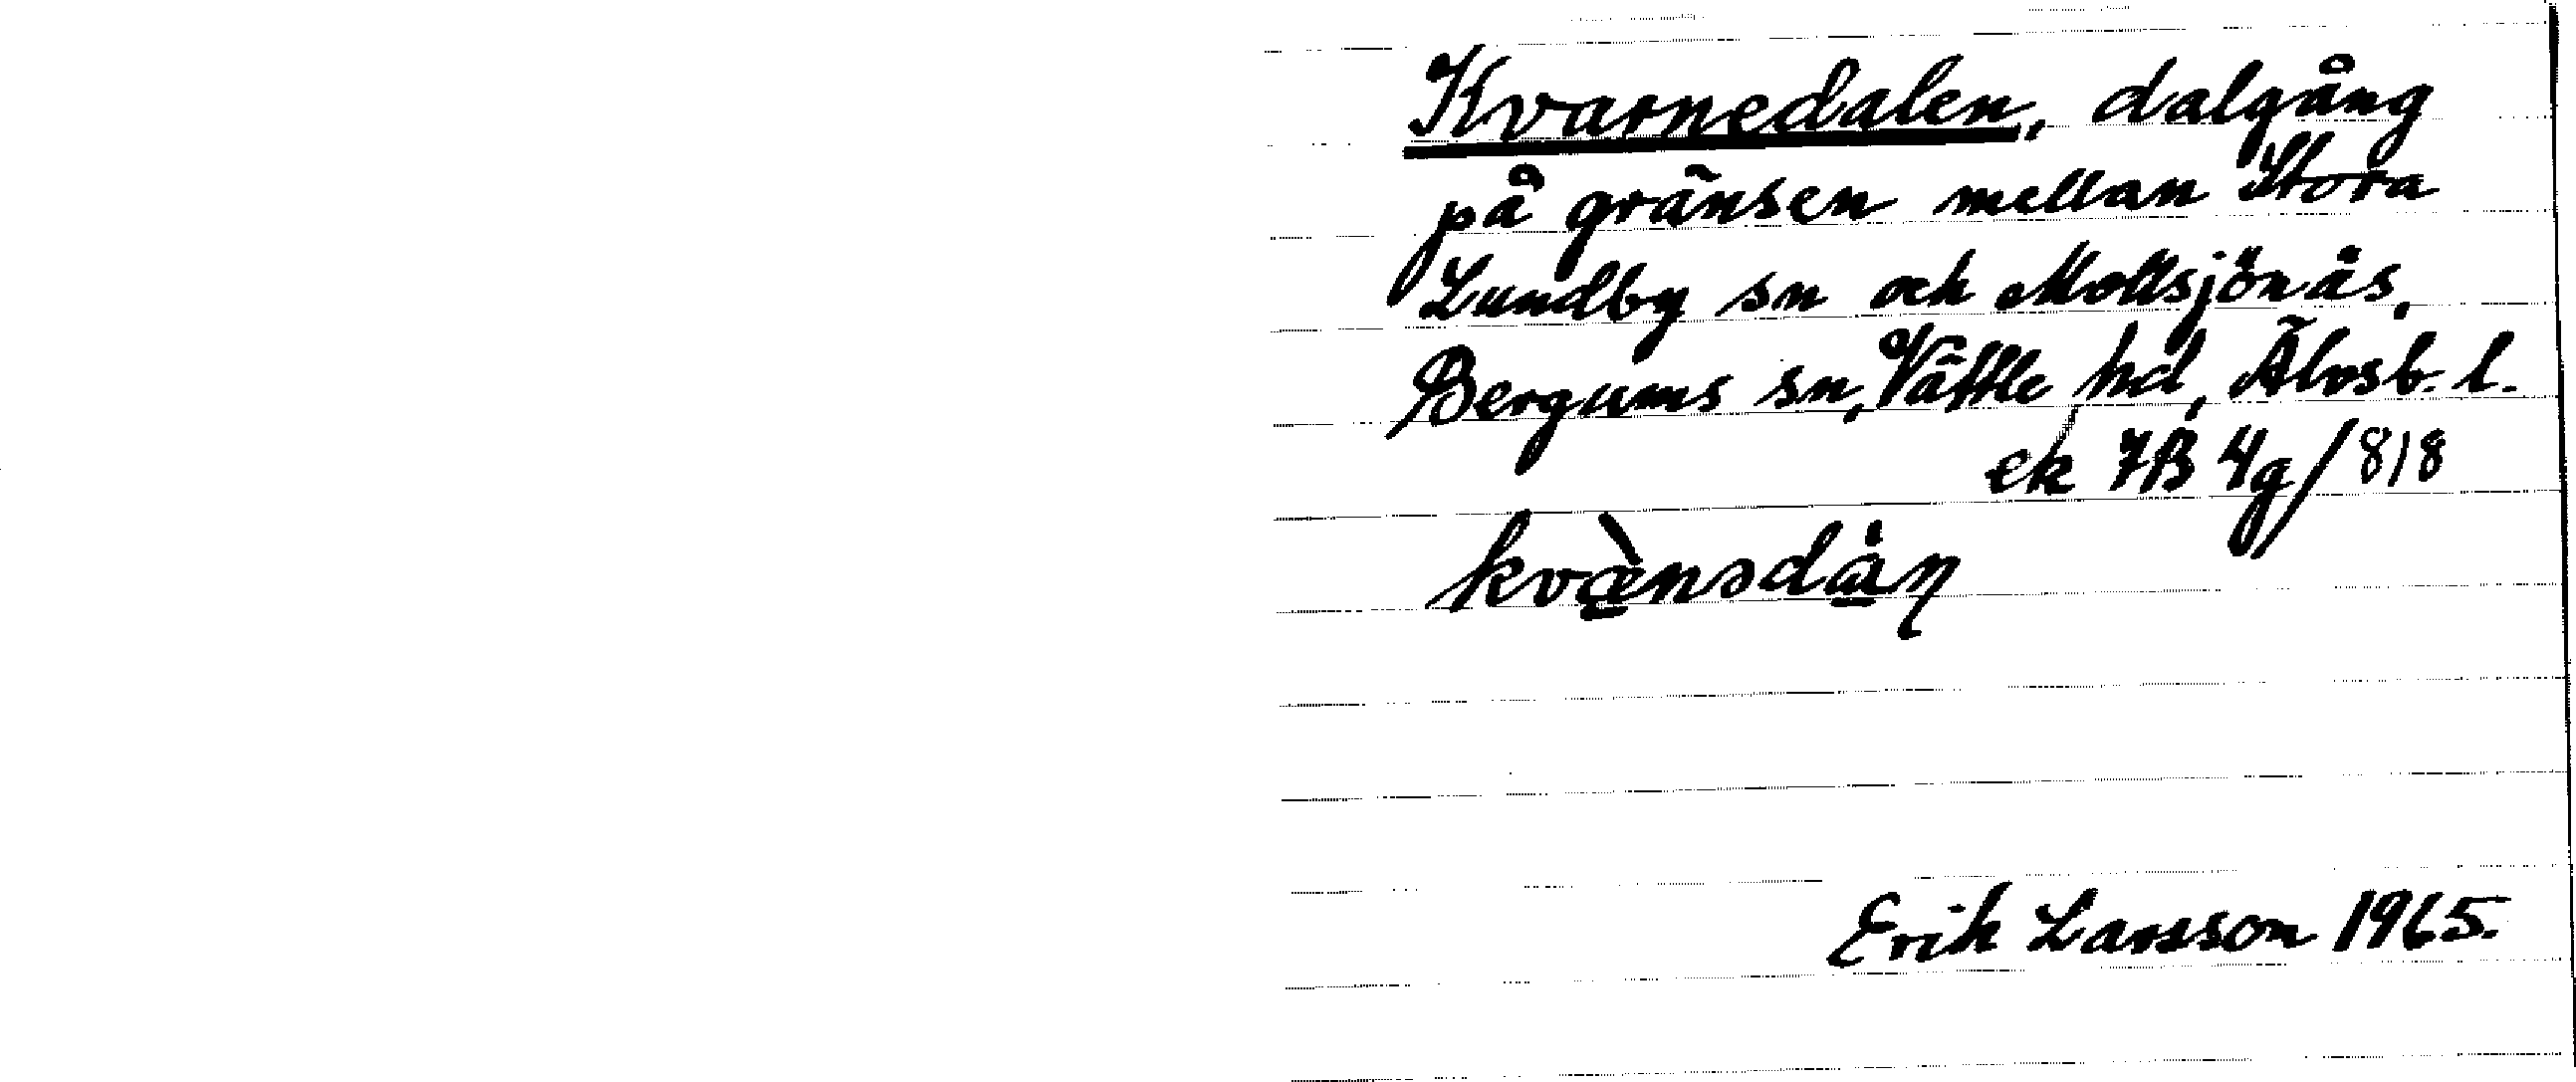 Kvarnedalen, dalgång
på gränsen mellan Stora
Lundby sn och Mollsjönäs,
Bergums sn, Vättle hd, Älvsb. l.
ek 7B 4g/818
Erik Larsson 1965.